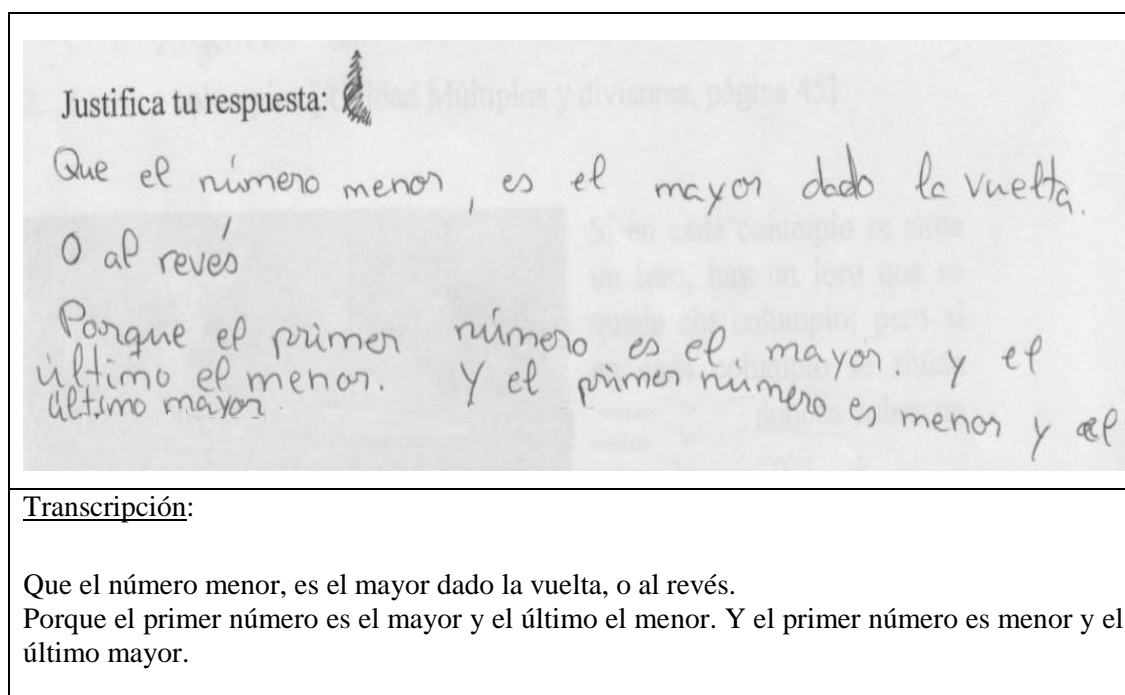 Justifica tu respuesta:
Que el número menor, es el mayor dado la vuelta.
O al revés
Porque el primer número es el mayor. y el
último el menor. Y el primer número es menor y el
último mayor.
Transcripción:
Que el número menor, es el mayor dado la vuelta, o al revés.
Porque el primer número es el mayor y el último el menor. Y el primer número es menor y el
último mayor.